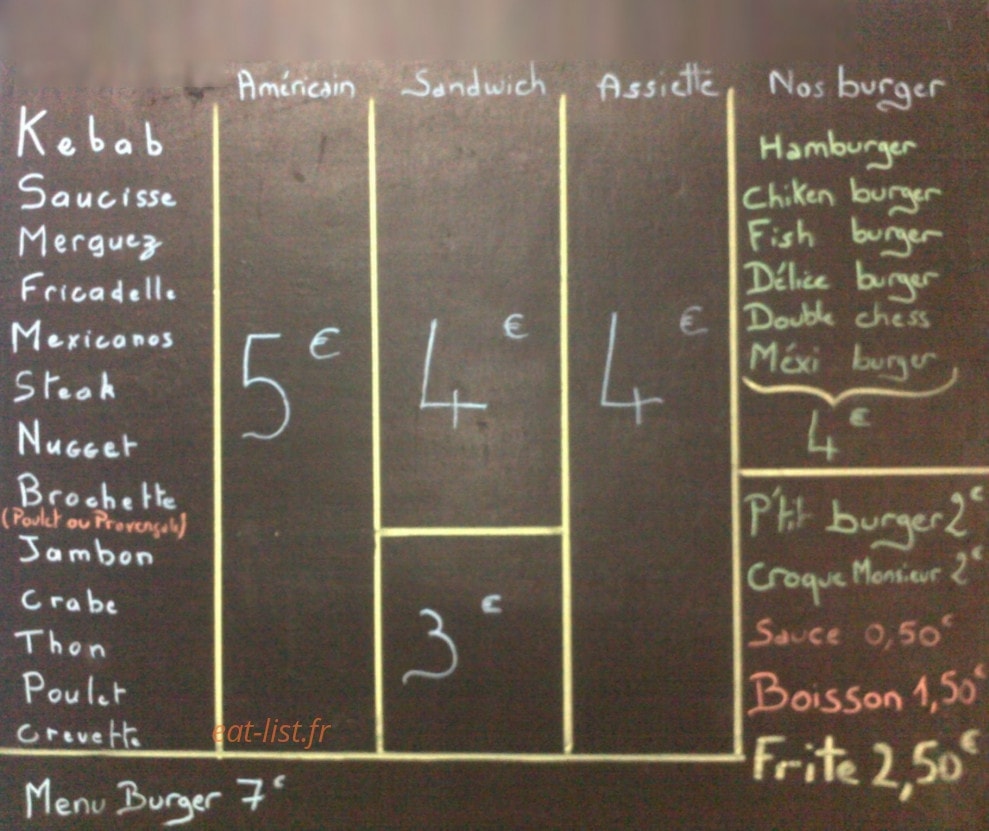 Américain Sandwich Assiette Nos burger
Kebab
Saucisse
Merguez
Fricadelle
Mexicanos
Steak
Nugget
Brochette
(Poulet ou Provençale)
Jambon
Crabe
Thon
Poulet
Crevette
5€
4€
3€
4€
Hamburger
Chiken burger
Fish burger
Délice burger
Double chess
Méxi burger
4€
P'tit burger 2€
Croque Monsieur 2€
Sauce 0,50€
Boisson 1,50€
Frite 2,50€
Menu Burger 7€
eat-list.fr